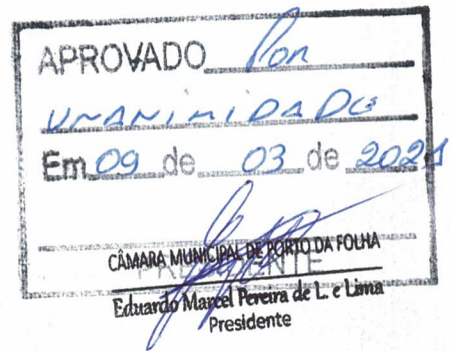 APROVADO Por
UNANIMIDADE
Em 09 de 03 de 2021
CÂMARA MUNICIPAL DE PORTO DA FOLHA
PRESIDENTE
Eduardo Marcel Pereira de L. e Lima
Presidente